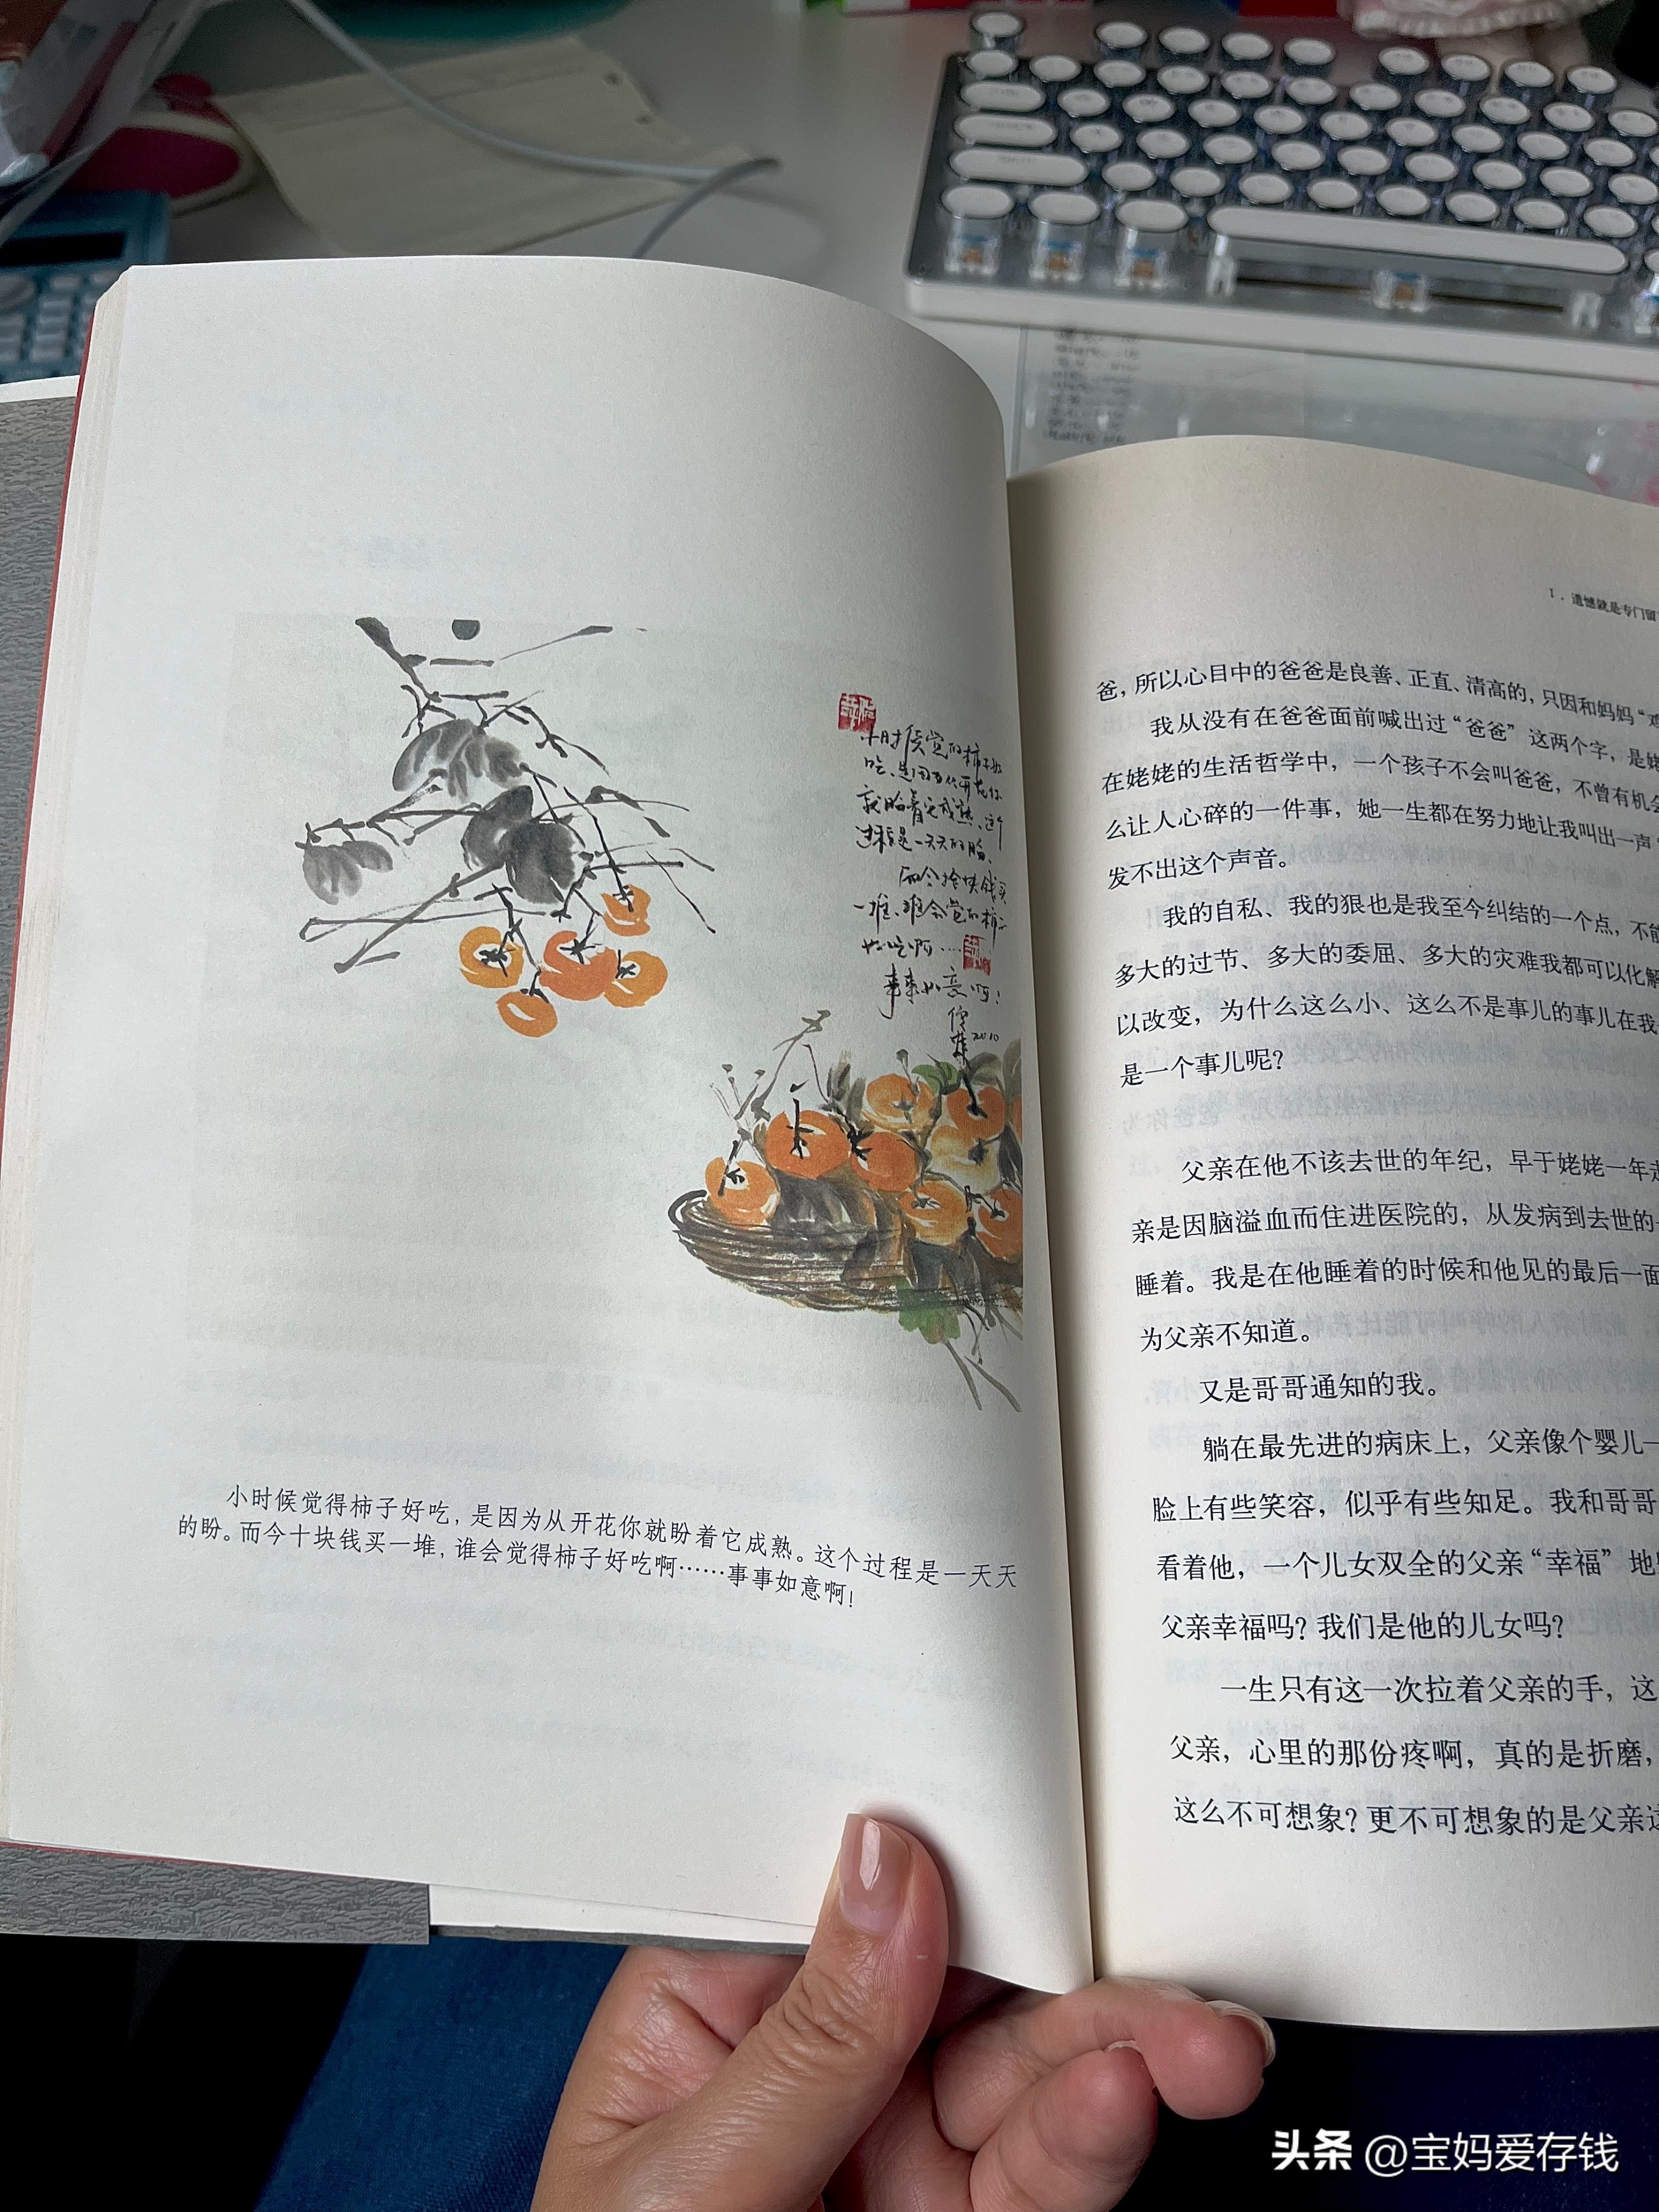 小时候觉得柿子好
吃，是因为从开花你
就盼着它成熟。这个
过程是一天天的盼。
而今拾块钱买
一堆，谁会觉的柿子
好吃啊……
事事如意啊！
倪萍 2010
小时候觉得柿子好吃，是因为从开花你就盼着它成熟。这个过程是一天天
的盼。而今十块钱买一堆，谁会觉得柿子好吃啊……事事如意啊！
1．遗憾就是专门留
爸，所以心目中的爸爸是良善、正直、清高的，只因和妈妈“鸡
我从没有在爸爸面前喊出过“爸爸”这两个字，是姥
在姥姥的生活哲学中，一个孩子不会叫爸爸，不曾有机会
么让人心碎的一件事，她一生都在努力地让我叫出一声“
发不出这个声音。
我的自私、我的狠也是我至今纠结的一个点，不能
多大的过节、多大的委屈、多大的灾难我都可以化解
以改变，为什么这么小、这么不是事儿的事儿在我
是一个事儿呢？
父亲在他不该去世的年纪，早于姥姥一年走
亲是因脑溢血而住进医院的，从发病到去世的
睡着。我是在他睡着的时候和他见的最后一面
为父亲不知道。
又是哥哥通知的我。
躺在最先进的病床上，父亲像个婴儿一
脸上有些笑容，似乎有些知足。我和哥哥
看着他，一个儿女双全的父亲“幸福”地
父亲幸福吗？我们是他的儿女吗？
一生只有这一次拉着父亲的手，这
父亲，心里的那份疼啊，真的是折磨，
这么不可想象？更不可想象的是父亲这
头条 @宝妈爱存钱